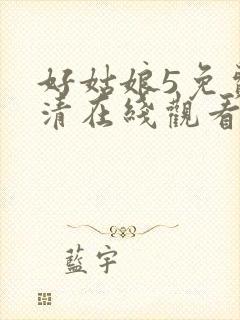 好姑娘5免費
清在綫觀看
藍宇